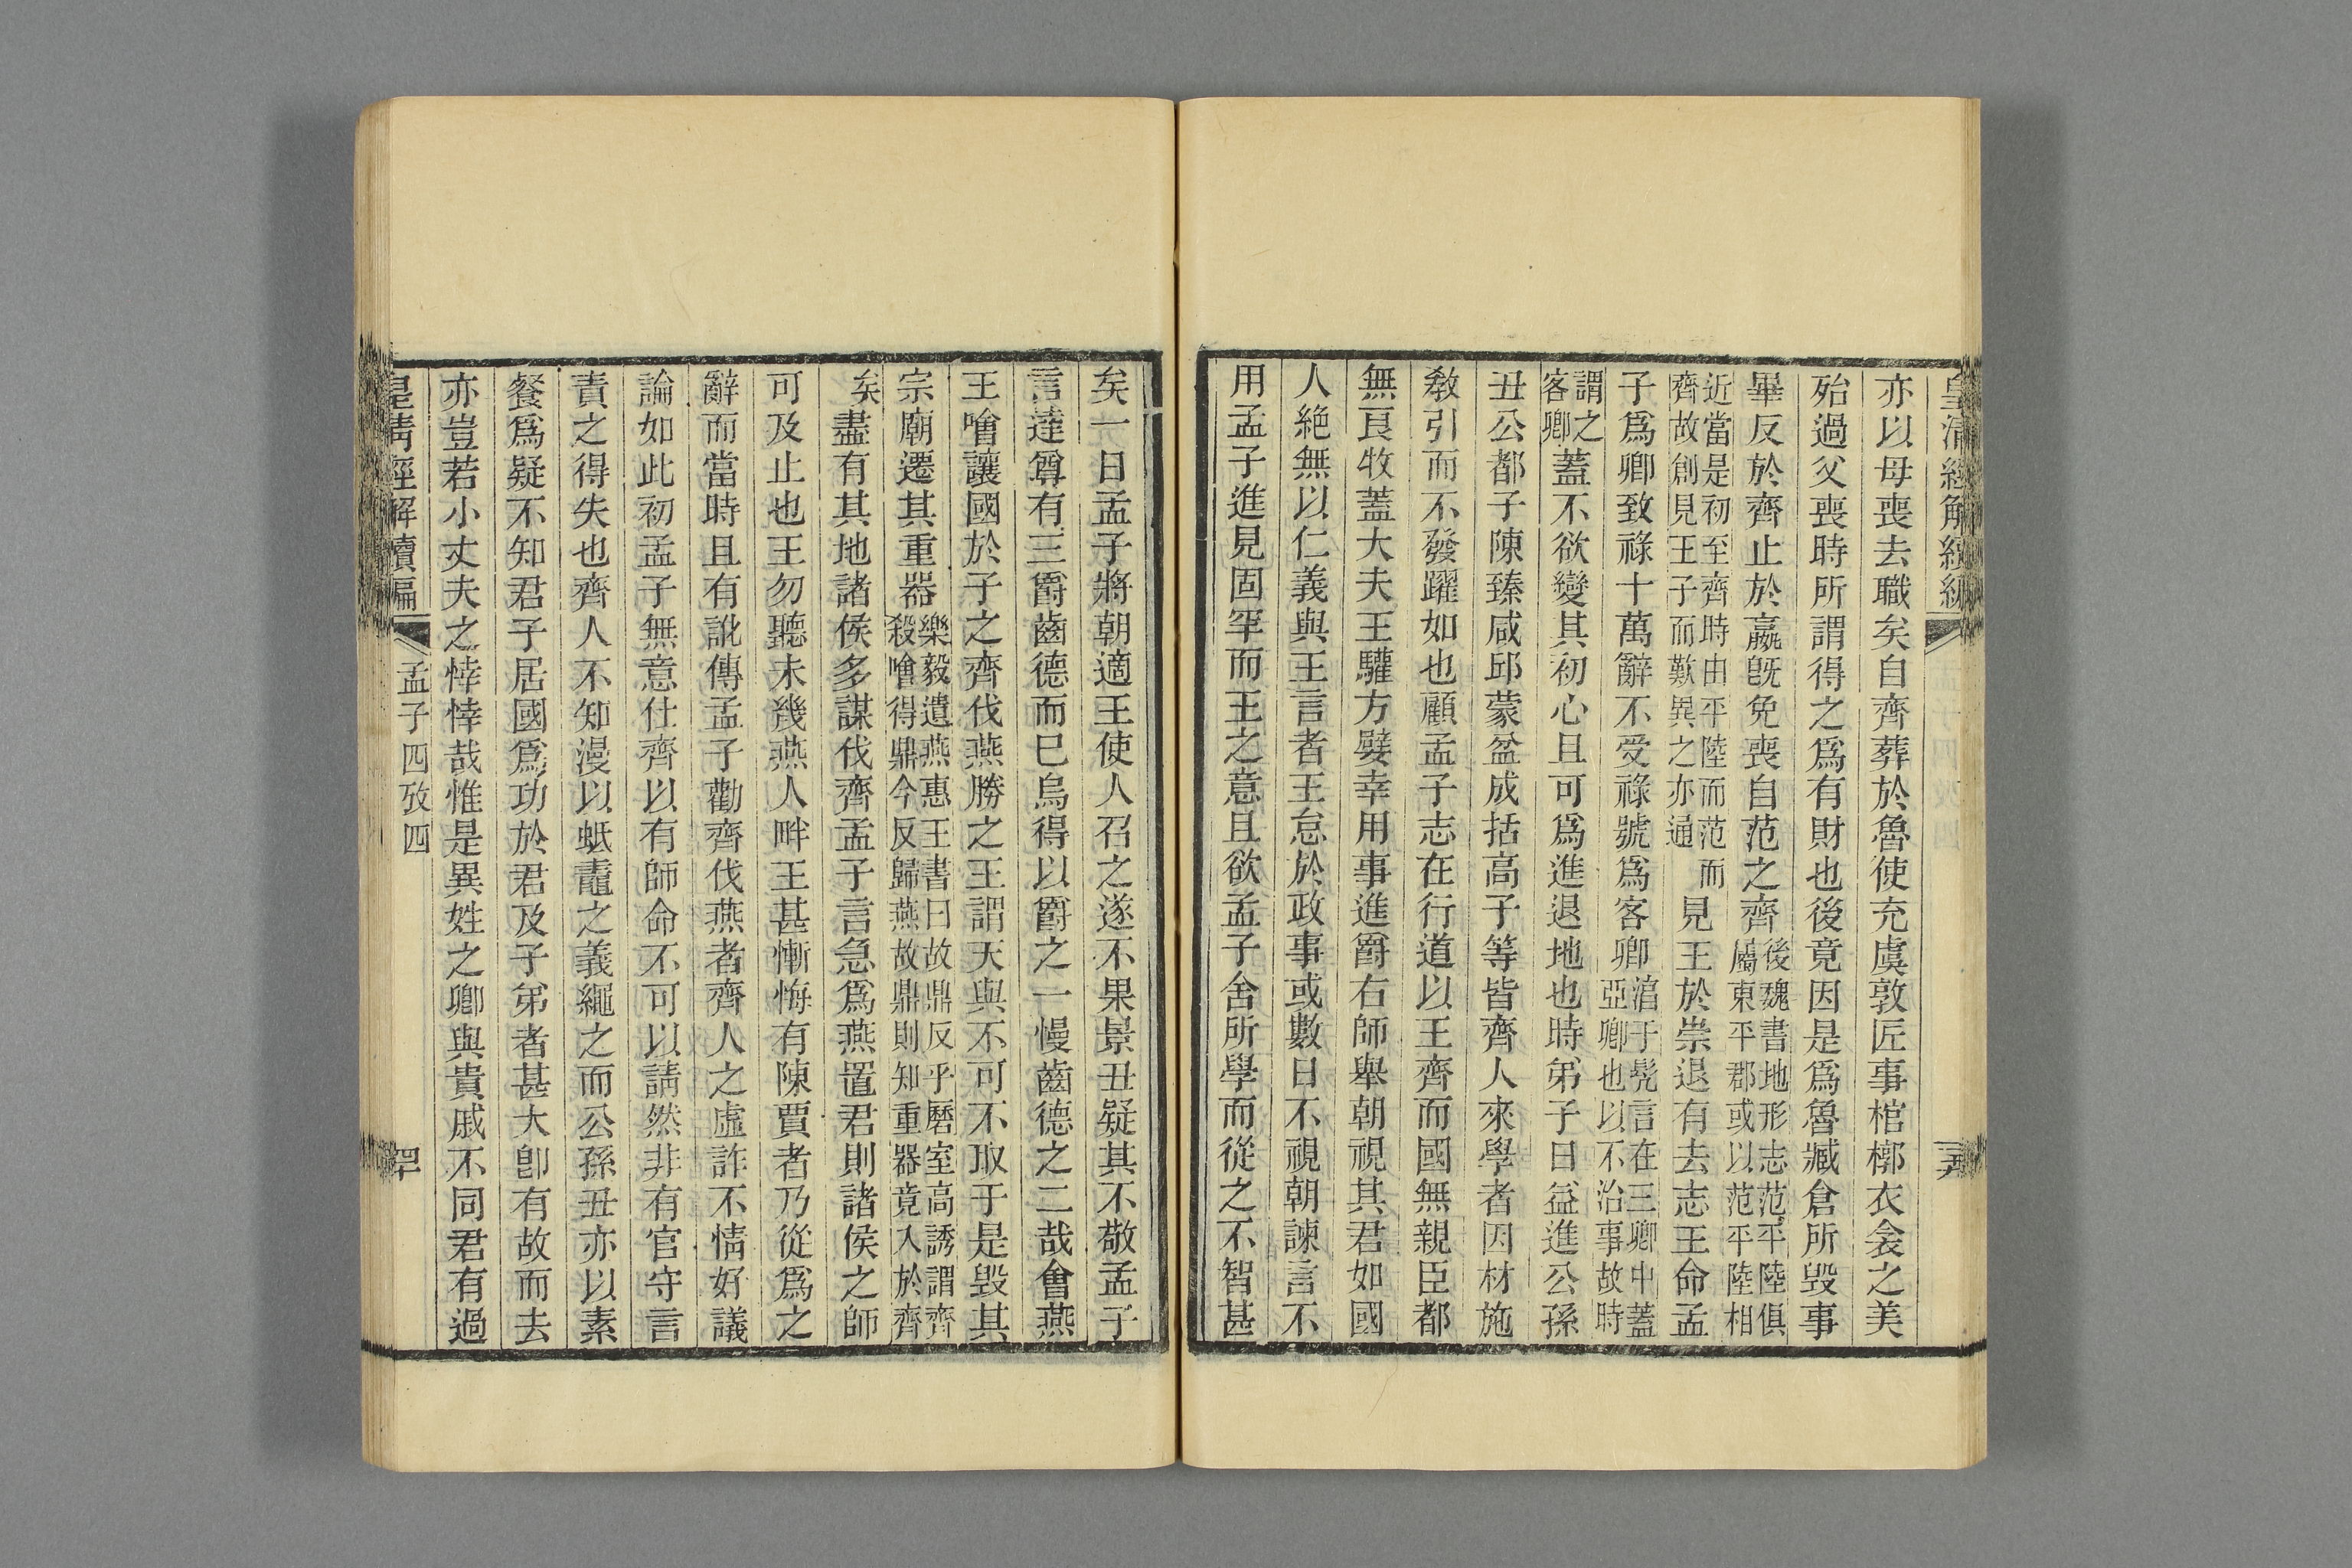 皇清經解續編
亦以母喪去職矣自齊葬於魯使充虞敦匠事棺槨衣衾之美
殆過父喪時所謂得之爲有財也後竟因是爲魯臧倉所毀事
畢反於齊止於嬴旣免喪自范之齊後魏書地形志范平陸俱屬東平郡或以范平陸相
近當是初至齊時由平陸而范而齊故創見王子而歎異之亦通見王於崇退有去志王命孟
子爲卿致祿十萬辭不受祿號爲客卿淳于髡言在三卿中蓋亞卿也以不治事故時
謂之客卿蓋不欲變其初心且可爲進退地也時弟子日益進公孫
丑公都子陳臻咸邱蒙盆成括高子等皆齊人來學者因材施
敎引而不發躍如也顧孟子志在行道以王齊而國無親臣都
無良牧蓋大夫王驩方嬖幸用事進爵右師舉朝視其君如國
人絶無以仁義與王言者王怠於政事或數日不視朝諫言不
用孟子進見固罕而王之意且欲孟子舍所學而從之不智甚
矣一日孟子將朝適王使人召之遂不果景丑疑其不敬孟子
言達尊有三爵齒德而已烏得以爵之一慢齒德之二哉會燕
王噲讓國於子之齊伐燕勝之王謂天與不可不取于是毀其
宗廟遷其重器樂毅遺燕惠王書曰故鼎反乎磿室高誘謂齊殺噲得鼎今反歸燕故鼎則知重器竟入於齊
矣盡有其地諸侯多謀伐齊孟子言急爲燕置君則諸侯之師
可及止也王勿聽未幾燕人畔王甚慚悔有陳賈者乃從爲之
辭而當時且有訛傳孟子勸齊伐燕者齊人之虛詐不情好議
論如此初孟子無意仕齊以有師命不可以請然非有官守言
責之得失也齊人不知漫以蚳鼃之義繩之而公孫丑亦以素
餐爲疑不知君子居國爲功於君及子弟者甚大卽有故而去
亦豈若小丈夫之悻悻哉惟是異姓之卿與貴戚不同君有過
皇清經解續編
孟子四攷四